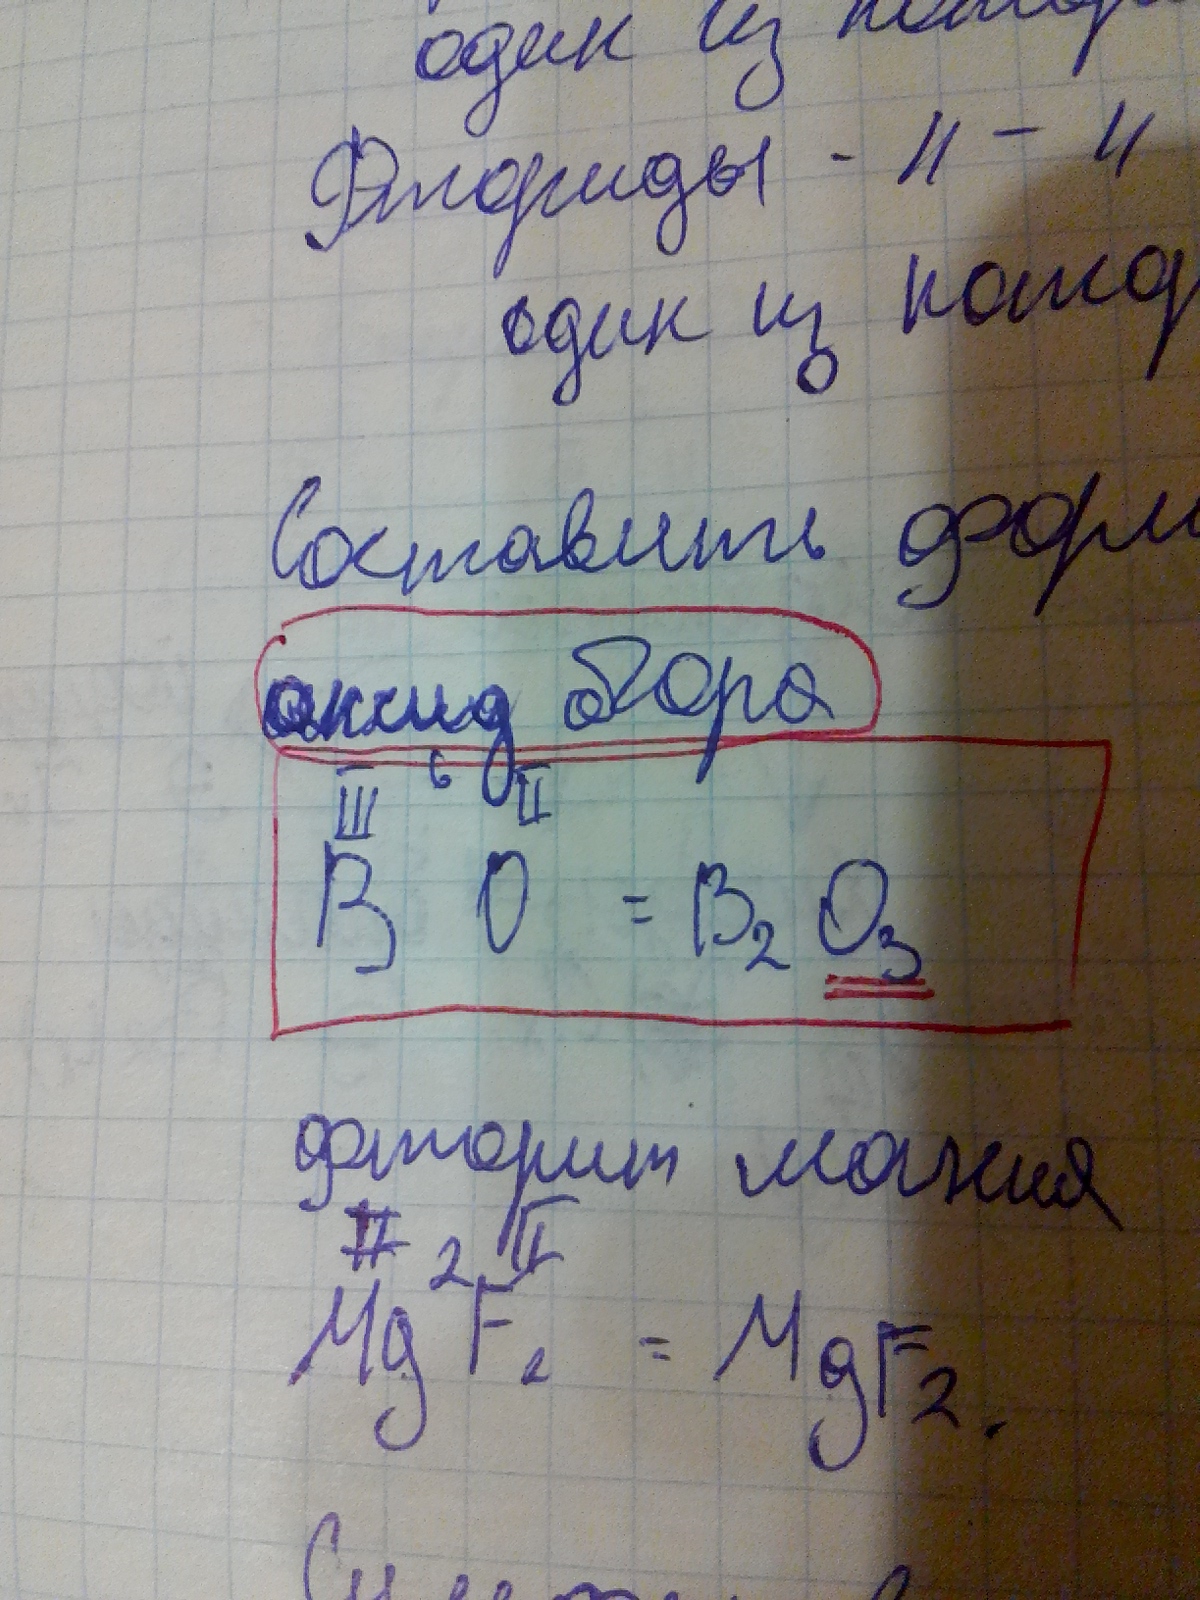 один из
Фториды - " - "
один из котор
Составить форм
оксид бора
III 6 II
B O = B2 O3
фторит магния
II 2 II
Mg F2 = MgF2.